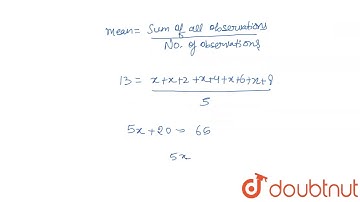 mean = Sum of all observations
No. of observations
13 = x+x+2+x+4+x+6+x+8
5
5x+20 = 65
5x
doubtnut